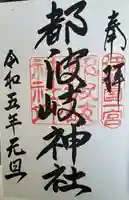 奉拝
都波岐神社
令和五年元旦